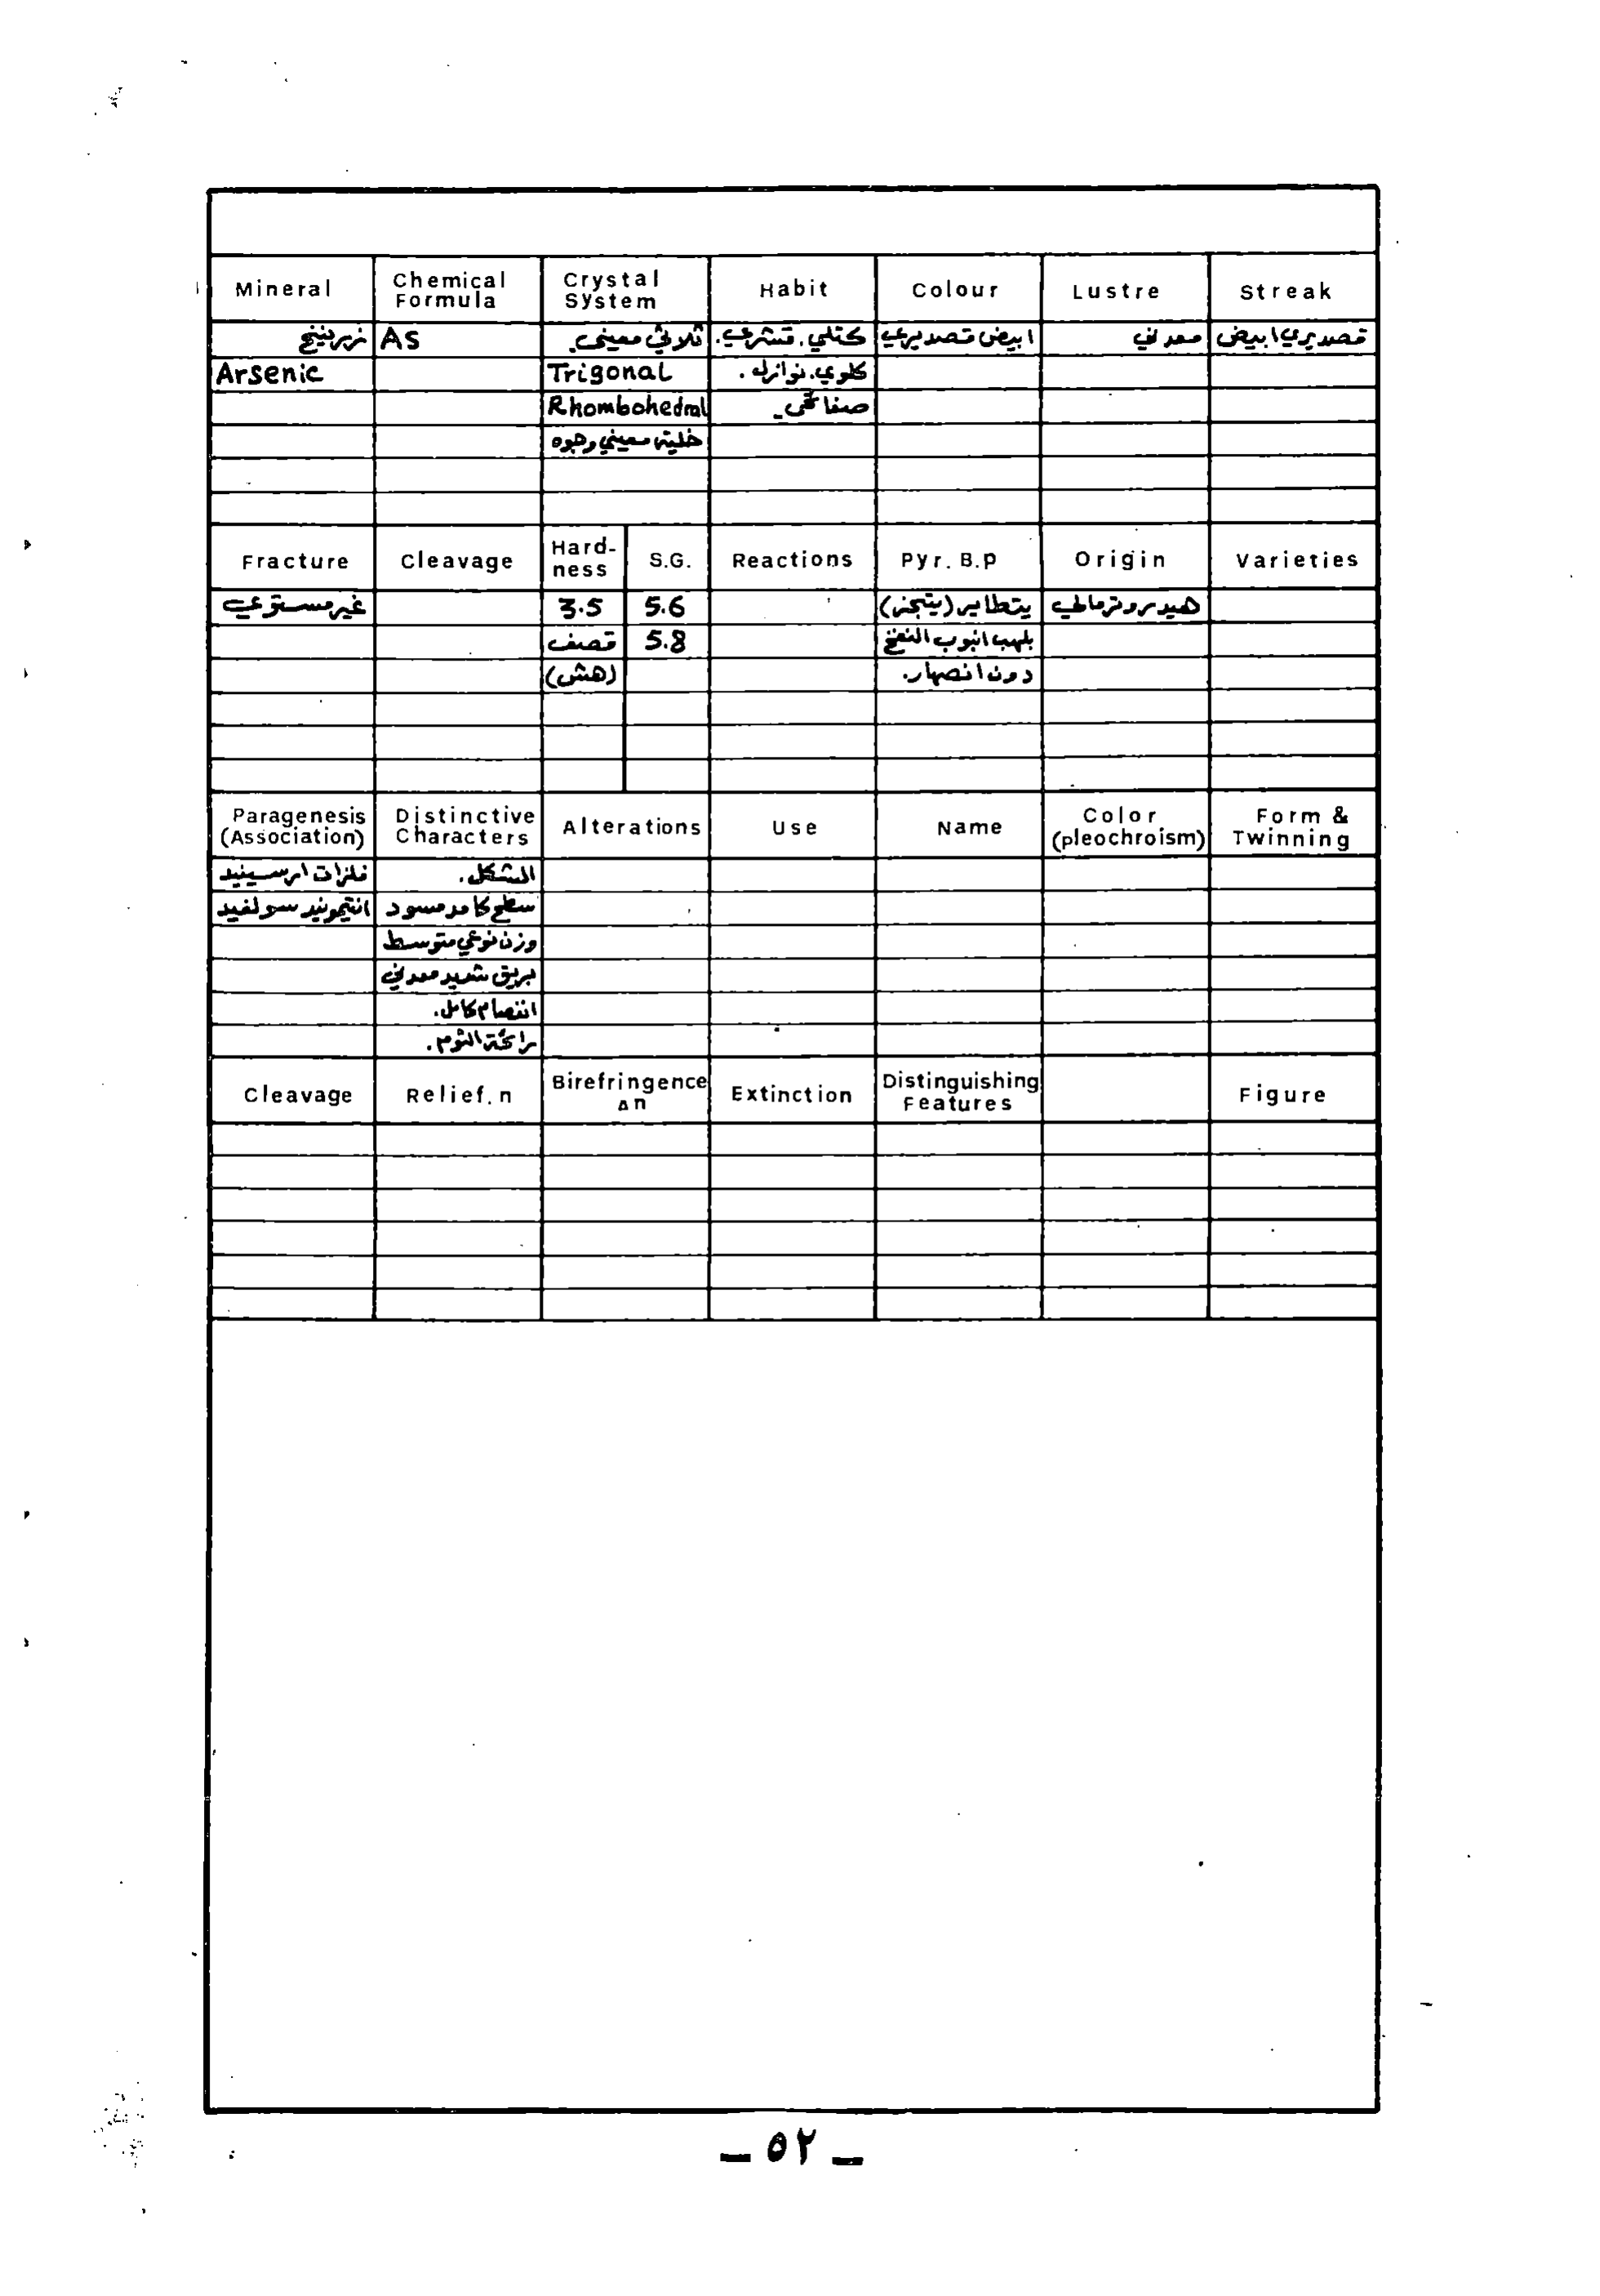 Mineral Chemical Formula Crystal System Habit Colour Lustre Streak
زرنيخ As ثلاثي معيني. كتلي. قشري. ابيض قصديري معدني قصديري ابيض
Arsenic Trigonal كلوي. نوازل.
Rhombohedral صفائحي.
خلية معيني وجوه
Fracture Cleavage Hard-ness S.G. Reactions Pyr. B.P Origin Varieties
غير مستوي 3.5 5.6 يتطاير (يتبخر) هيدروترمالي
قصف 5.8 بلهب انبوب النفخ
(هش) دون انصهار.
Paragenesis (Association) Distinctive Characters Alterations Use Name Color (pleochroism) Form & Twinning
فلزات ارسينيد الشكل.
انتيمونيد سولفيد سطح كامد مسود
وزن نوعي متوسط
بريق شديد معدني
انفصام كامل.
رائحة الثوم.
Cleavage Relief. n Birefringence Δn Extinction Distinguishing Features Figure
— ٥٢ —